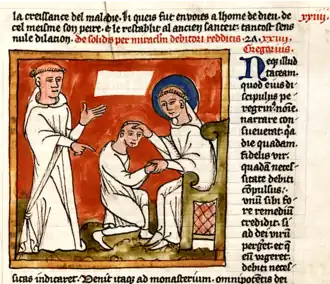 la creissance del maladie. Il queis fut envoies a lhome de dieu. de
cel meisme son peire. e le restablit al ancien santeit. tantost sens
nule dilation. De solidis per miraculum debitori redditis. 2A. xxiiij.
xxviij.
Gregorius.
Neq; illud
taceam.
quod eius di
scipulus pe
regrin'. noie.
narrare con
sueverat. qa
die quadam.
fidelis vir.
quadā neces
sitate debiti
cōpulsus.
unū sibi fo
re remediū
credidit. si
ad dei virū
perget. et q
eū vrgeret.
debiti neces
sitas indicaret. Venit itaq; ad monasterium. omnipotentis dei